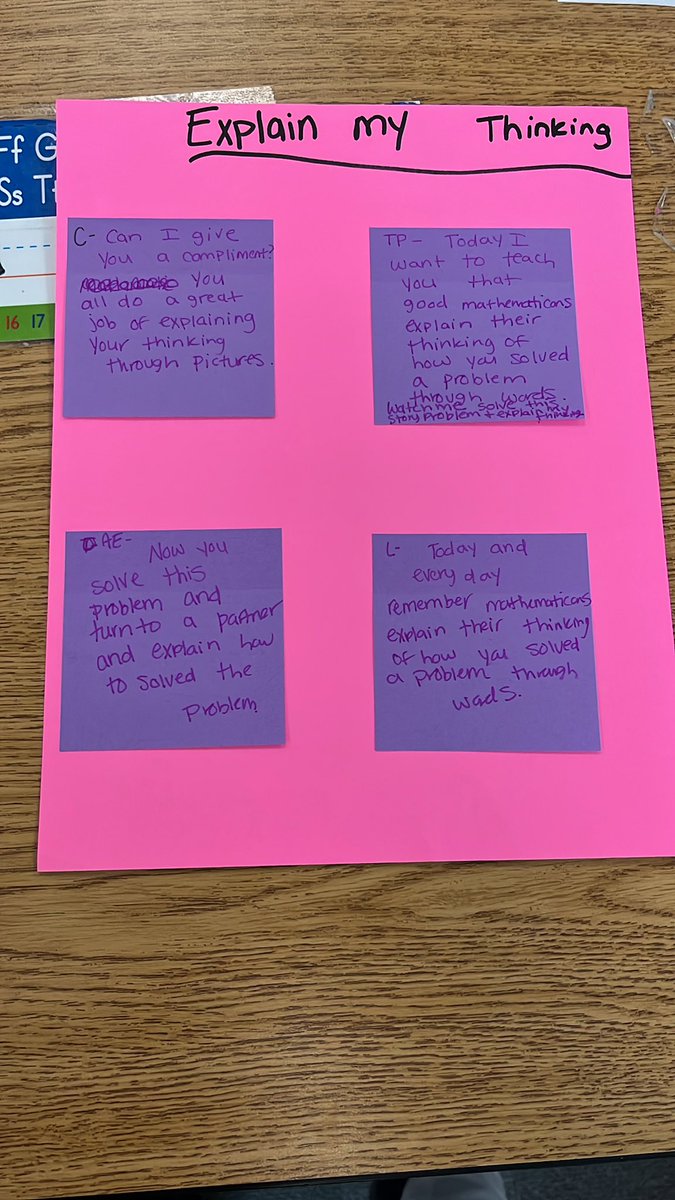 Explain my Thinking
Ff G
Ss T
16 17
C- Can I give
you a compliment?
You
all do a great
job of explaining
your thinking
through pictures.
TP- Today I
want to teach
you that
good mathematicans
explain their
thinking of
how you solved
a problem
through words.
Watch me solve this
story problem + explain my
thinking
AE- Now you
solve this
problem and
turn to a partner
and explain how
to solved the
problem.
L- Today and
every day
remember mathematicans
explain their thinking
of how you solved
a problem through
wads.